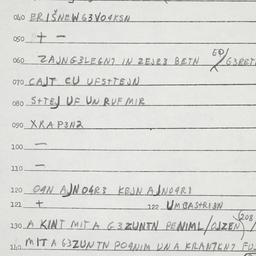 040 ERIŠNEW G3VO4KSN
050 + -
060 ZAJNG3LEGN7 IN ZEJE3 BETN
070 CAJT CU UFSTTEJN
080 S+TEJ UF UN RUF MIR
090 XRAP3N2
100 -
110 -
120 O4N AJNO4R3 KEJN AJNO4R3
121 + 122 UMBASTRI3N
130 A KINT MIT A G3ZUNTN PENIML/OJZEN
MIT A G3ZUNTN PO4NIM UN A KRAN7KN7 FU